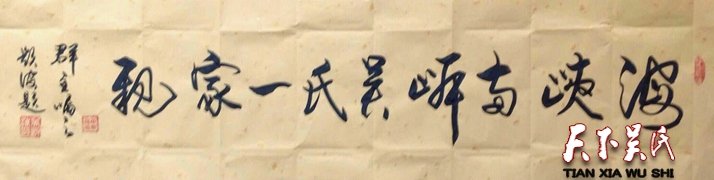 海峽两岸吴氏一家親
群主嘱之
天下吴氏
TIAN XIA WU SHI